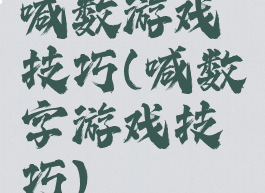 喊数游戏
技巧(喊数
字游戏技
巧)